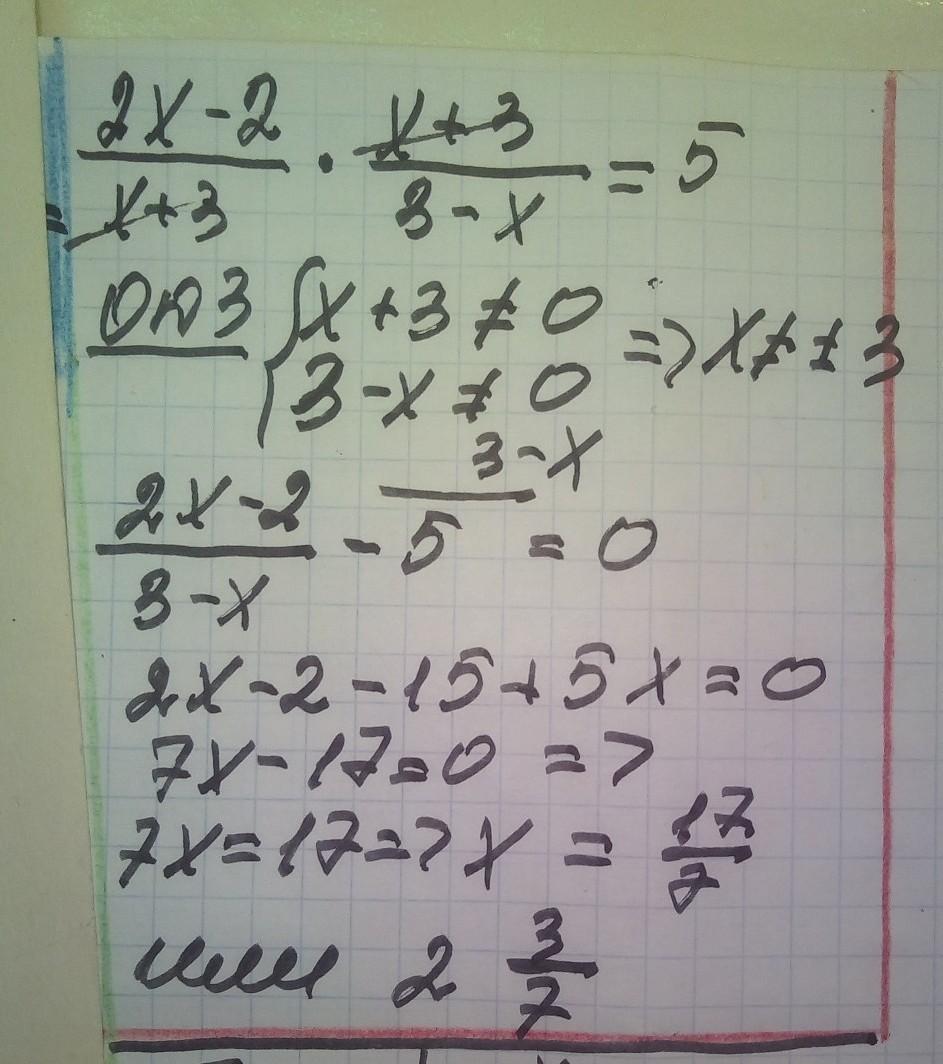 (2x-2)/(x+3) · (x+3)/(3-x) = 5
ОДЗ { x+3 ≠ 0 => x ≠ ± 3
3-x ≠ 0
3-x
(2x-2)/(3-x) - 5 = 0
2x-2-15+5x=0
7x-17=0 =>
7x=17=> x = 17/7
или 2 3/7